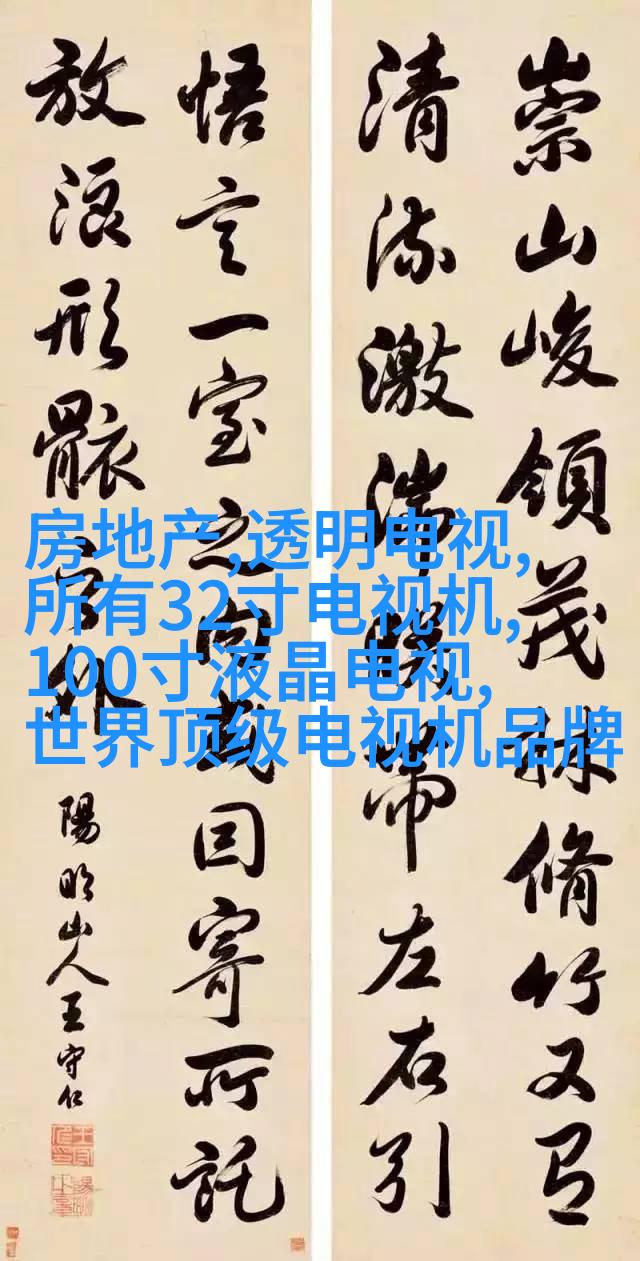 房地产,透明电视,
所有32寸电视机,
100寸液晶电视,
世界顶级电视机品牌
崇山峻領茂林脩竹又有
清流激湍暎帶左右引
悟言一室之内或因寄所託
放浪形骸之外
陽明山人王守仁